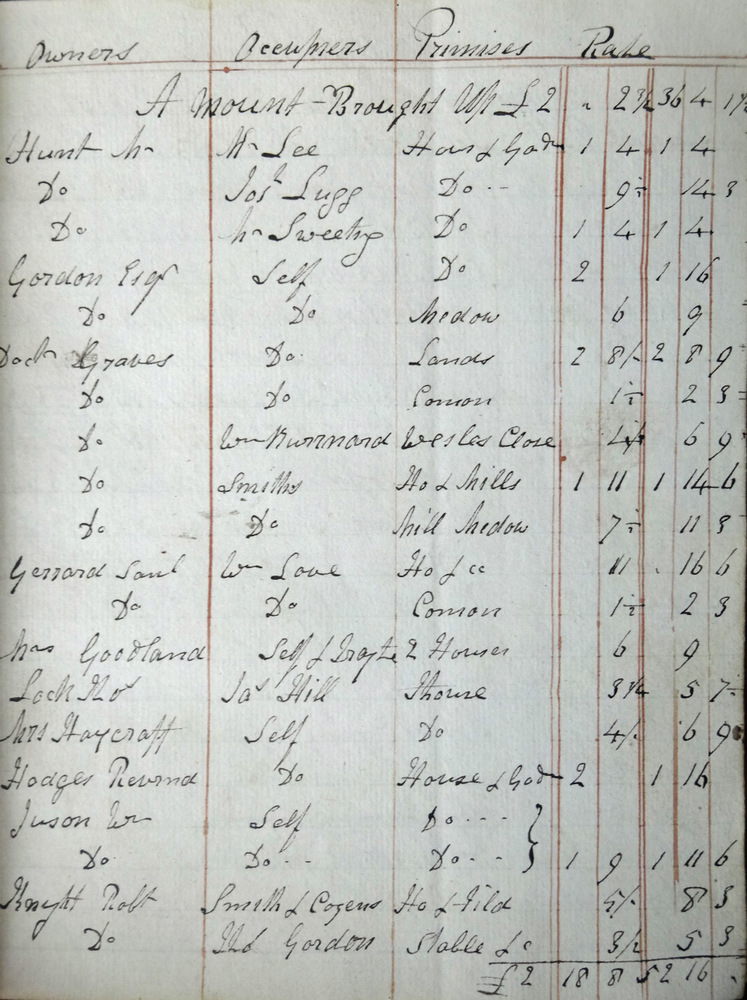 Owners Occupiers Premises Rate
Amount Brought Up £2 " 2¾ 36 4 1½
Hunt Mr Mr Lee Hous & Gadn 1 4 1 4
Do Josh Lugg Do -- 9½ 14 3
Do Mr Sweeting Do 1 4 1 4
Gordon Esqr Self Do 2 1 16
Do Do Medow 6 9
Doct Graves Do Lands 2 8½ 2 8 9
Do Do Comon 1½ 2 3
Do Wm Burnard Wesles Close 4½ 6 9
Do Smiths Ho & Mills 1 11 1 14 6
Do Do Mill Medow 7½ 11 3
Gerrard Saml Wm Love Ho & cc 11 16 6
Do Do Comon 1½ 2 3
Mrs Goodland Self & 2 Houses 6 9
Lock Thos Jas Hill House 3¾ 5 7
Mrs Haycraft Self Do 4½ 6 9
Hodges Revrnd Do House & Gadn 2 1 16
Juson Wm Self Do ---
Do Do -- Do -- 1 9 1 11 6
Knight Robt Smith & Cozens Ho & Fild 5½ 8 3
Do Gordon Stable &c 3½ 5 3
£2 18 8 52 16 "